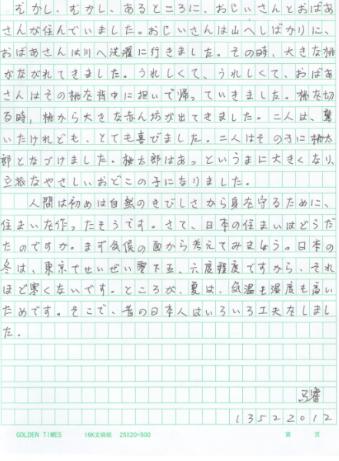 むかし、むかし、あるところに、おじいさんとおばあ
さんが住んでいました。おじいさんは山へしばかりに、
おばあさんは川へ洗濯に行きました。その時、大きな桃
がながれてきました。うれしくて、うれしくて、おばあ
さんはその桃を背中に担いで帰っていきました。桃を切
る時、桃から大きな赤ん坊が出てきました。二人は、驚
いたけれども、とても喜びました。二人はその子に桃太
郎となづけました。桃太郎はあっというまに大きくなり、
立派なやさしいおとこの子になりました。
人間は初めは自然のきびしさから身を守るために、
住まいを作ったそうです。さて、日本の住まいはどうだ
たのですか。まず気候の面から考えてみましょう。日本の
冬は、東京でせいぜい零下五、六度程度ですから、それ
ほど寒くないです。ところが、夏は、気温も湿度も高い
ためです。そこで、昔の日本人はいろいろ工夫をしまし
た。
13522012
GOLDEN TIMES 16K文稿紙 25X20=500 第 頁